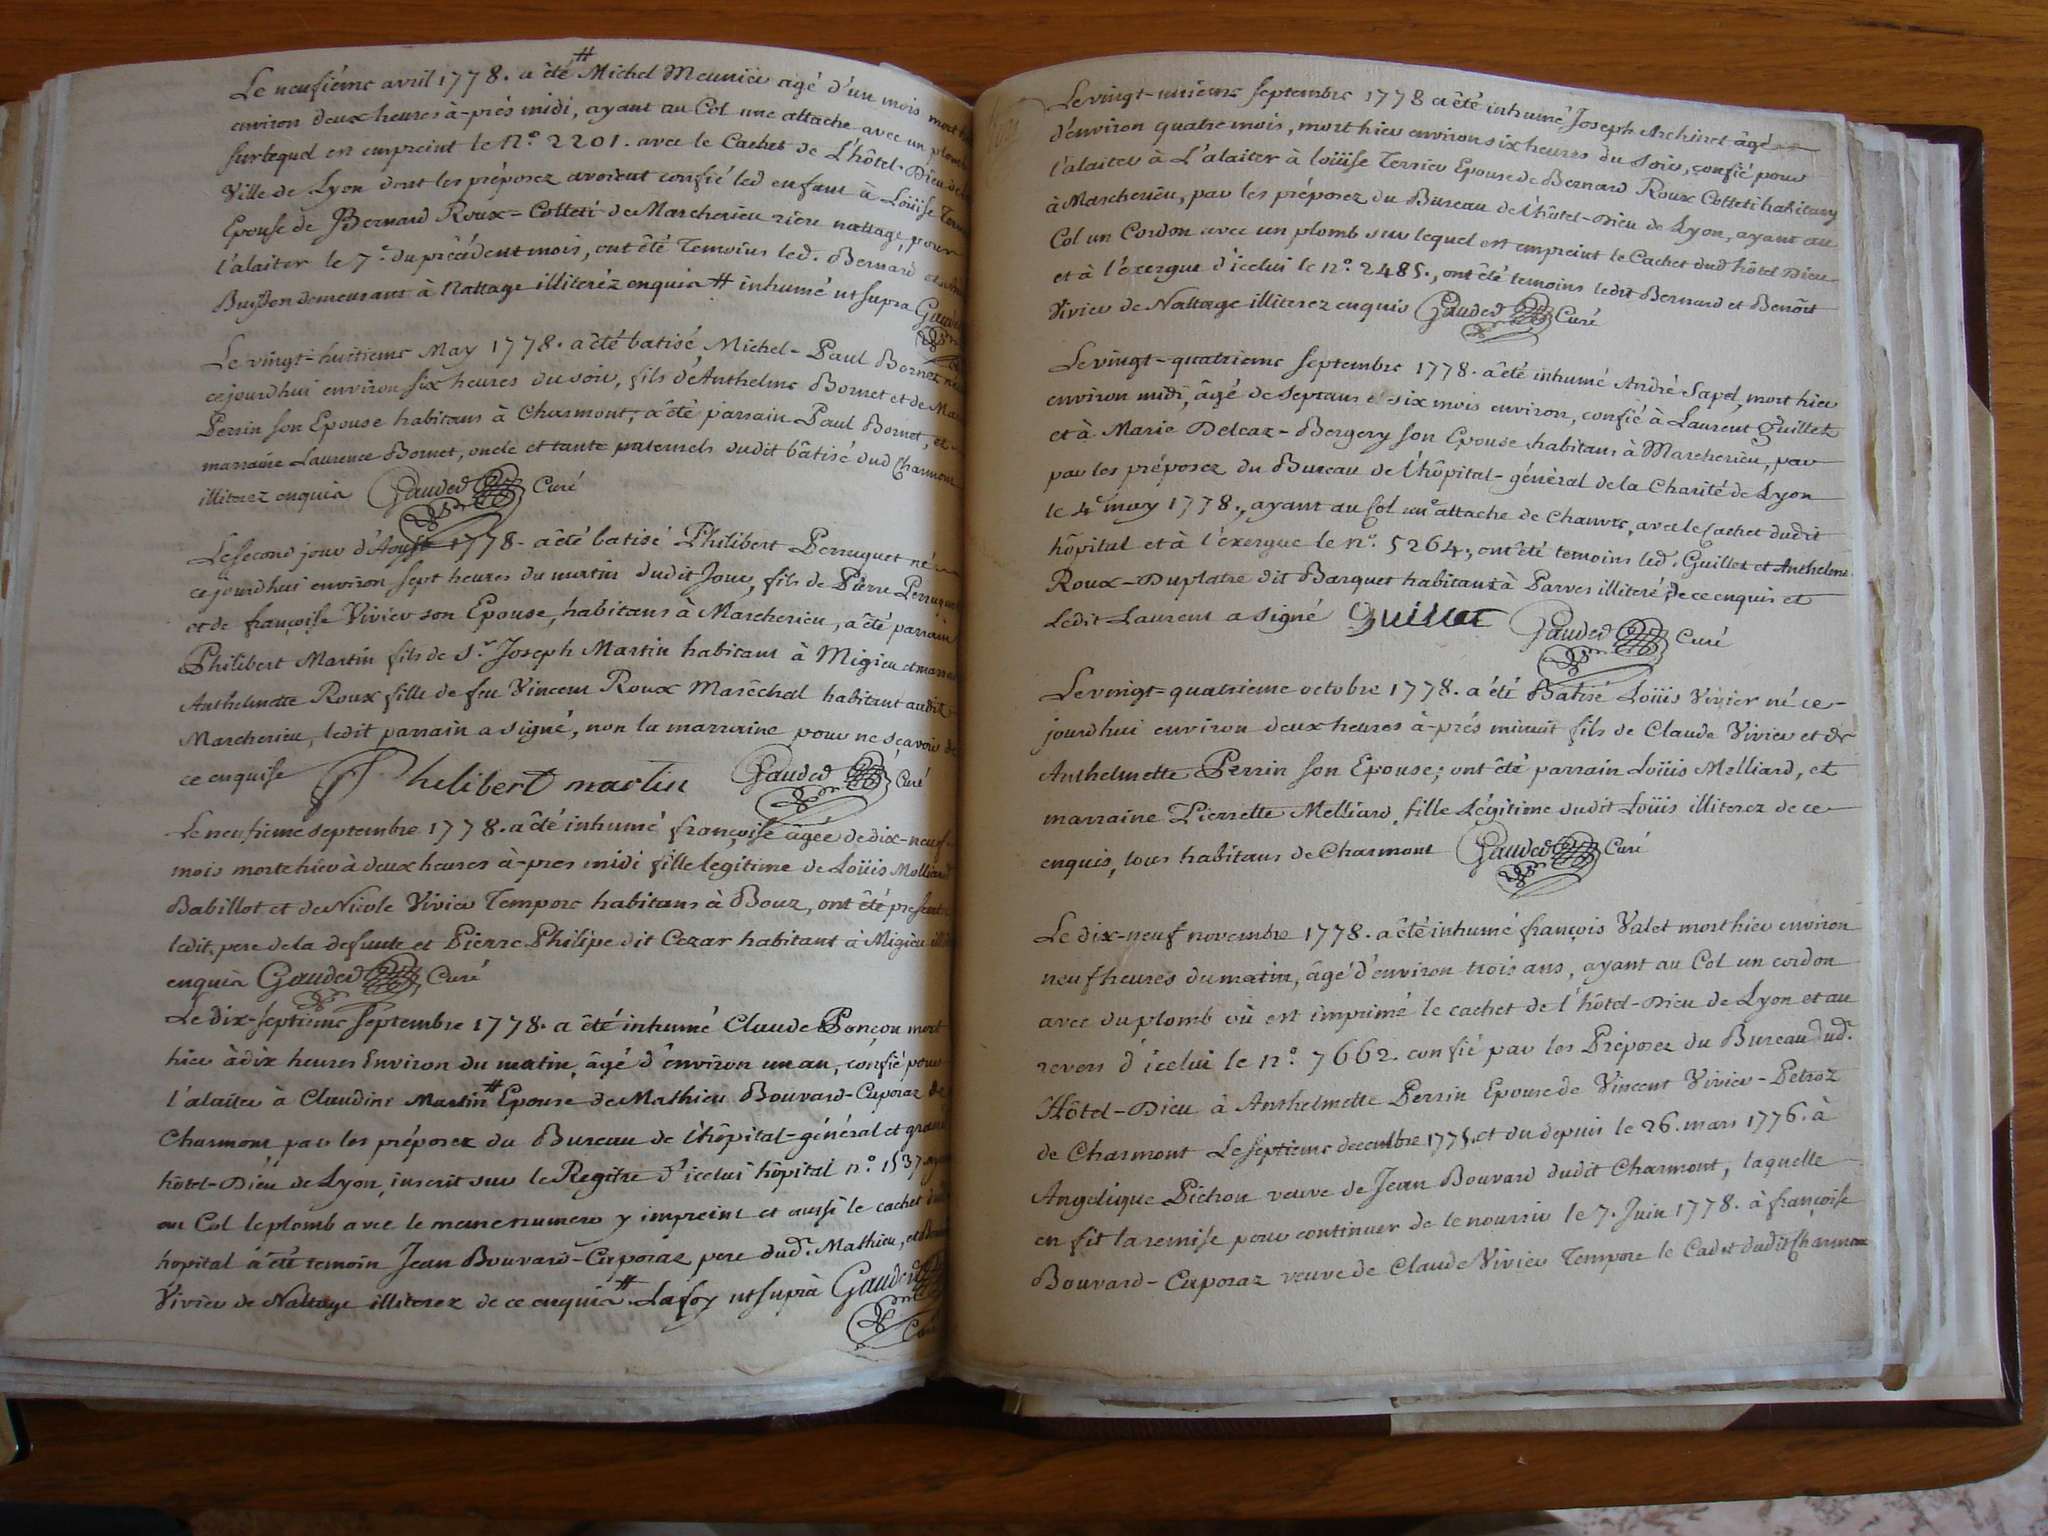 Le neufiéme avril 1778. a été # Michel Meunier agé d'un mois mort hier
environ deux heures à-prés midi, ayant au Col une attache avec un plomb
sur lequel est empreint le N.o 2201. avec le Cachet de L'hôtel-Dieu de la
Ville de Lyon dont les préposez avoient confié led enfant à Loüise Terrier
Epouse de Bernard Roux-Colleti de Marcherieu riere nattage, pour
l'alaiter le 7.e du précédent mois, ont été Temoins led. Bernard et
Buisson demeurant à Nattage illiterez enquis # inhumé ut supra Gauded
Le vingt-huitieme May 1778. a été batisé Michel-Paul Bornet né
cejourdhui environ six heures du soir, fils d'Anthelme Bornet et de
Perrin son Epouse habitans à Charmont; a été parrain Paul Bornet, et
marraine Laurence Bornet, oncle et tante paternels dudit bâtisé dud Charmont
illiterez enquis Gauded Curé
Le second jour d'Aoust 1778. a été batisé Philibert Perruquet né
cejourdhui environ sept heures du matin dudit Jour, fils de Pierre Perruquet
et de françoise Vivier son Epouse, habitans à Marcherieu, a été parrain
Philibert Martin fils de S.r Joseph Martin habitant à Migieu et marraine
Anthelmette Roux fille de feu Vincent Roux Maréchal habitant audit
Marcherieu, ledit parrain a signé, non la marraine pour ne sçavoir de
ce enquise Philibert martin Gauded Curé
Le neufieme septembre 1778. a été inhumé françoise agée de dix-neuf
mois morte hier à deux heures à-pres midi fille legitime de Loüis Molliard
Babillot et de Nicole Vivier Tempore habitans à Bouz, ont été presents
ledit pere de la defunte et Pierre Philipe dit Cezar habitant à Migieu
enquis Gauded Curé
Le dix-septieme septembre 1778. a été inhumé Claude Ponçon mort
hier à dix heures Environ du matin, âgé d'environ un an, confié pour
l'alaiter à Claudine Martin # Epouse de Mathieu Bouvard-Cuporaz de
Charmont par les préposez du Bureau de l'hôpital-général et grand
hôtel-Dieu de Lyon, inscrit sur le Regitre d'icelui hôpital n.o 1537 ayant
au Col le plomb avec le meme numero y impreint et aussi le cachet dud
hopital a été temoin Jean Bouvard-Cuporaz pere dud. Mathieu, et
Vivier de Nattage illiterez de ce enquis # Lafoy ut suprà Gauded
Curé
Le vingt-unieme septembre 1778 a été inhumé Joseph Archinet âgé
d'environ quatre mois, mort hier environ six heures du soir, confié pour
l'alaiter à L'alaiter à loüise Terrier Epouse de Bernard Roux Colleti habitans
à Marcherieu, par les préposez du Bureau de l'hôtel-Dieu de Lyon, ayant au
Col un Cordon avec un plomb sur lequel est empreint le Cachet dud hôtel Dieu
et à l'exergue d'icelui le n.o 2485., ont été temoins ledit Bernard et Benoît
Vivier de Nattage illiterez enquis Gauded Curé
Le vingt-quatrieme septembre 1778. a été inhumé André Sapel, mort hier
environ midi, âgé de sept ans et six mois environ, confié à Laurent Guillet
et à Marie Delcaz-Bergery son Epouse habitans à Marcherieu, par
par les préposez du Bureau de l'hôpital-général de la Charité de Lyon
le 4.e may 1778., ayant au Col une attache de Chanvre, avec le cachet dudit
hôpital et à l'éxergue le n.o 5264., ont été temoins led. Guillet et Anthelme
Roux-Duplatre dit Barquet habitant à Parves illiteré de ce enquis et
Ledit Laurent a signé Guillet Gauded Curé
Le vingt-quatrieme octobre 1778. a été Batisé Loüis Vivier né ce-
jourdhui environ deux heures à-prés minuit fils de Claude Vivier et de
Anthelmette Perrin son Epouse; ont été parrain Loüis Melliard, et
marraine Pierrette Melliard fille Légitime dudit Loüis illiterez de ce
enquis, tous habitans de Charmont Gauded Curé
Le dix-neuf novembre 1778. a été inhumé françois Valet mort hier environ
neuf heures du matin, âgé d'environ trois ans, ayant au Col un cordon
avec du plomb où est imprimé le cachet de l'hôtel-Dieu de Lyon et au
revers d'icelui le n.o 7662. confié par les Préposez du Bureau dud.
Hôtel-Dieu à Anthelmette Perrin Epouse de Vincent Vivier-Petroz
de Charmont Le septieme decembre 1775. et du depuis le 26. mars 1776. à
Angelique Pichon veuve de Jean Bouvard dudit Charmont, laquelle
en fit la remise pour continuer de le nourrir le 7. Juin 1778. à françoise
Bouvard-Cuporaz veuve de Claude Vivier Tempore le Cadet dudit Charmont